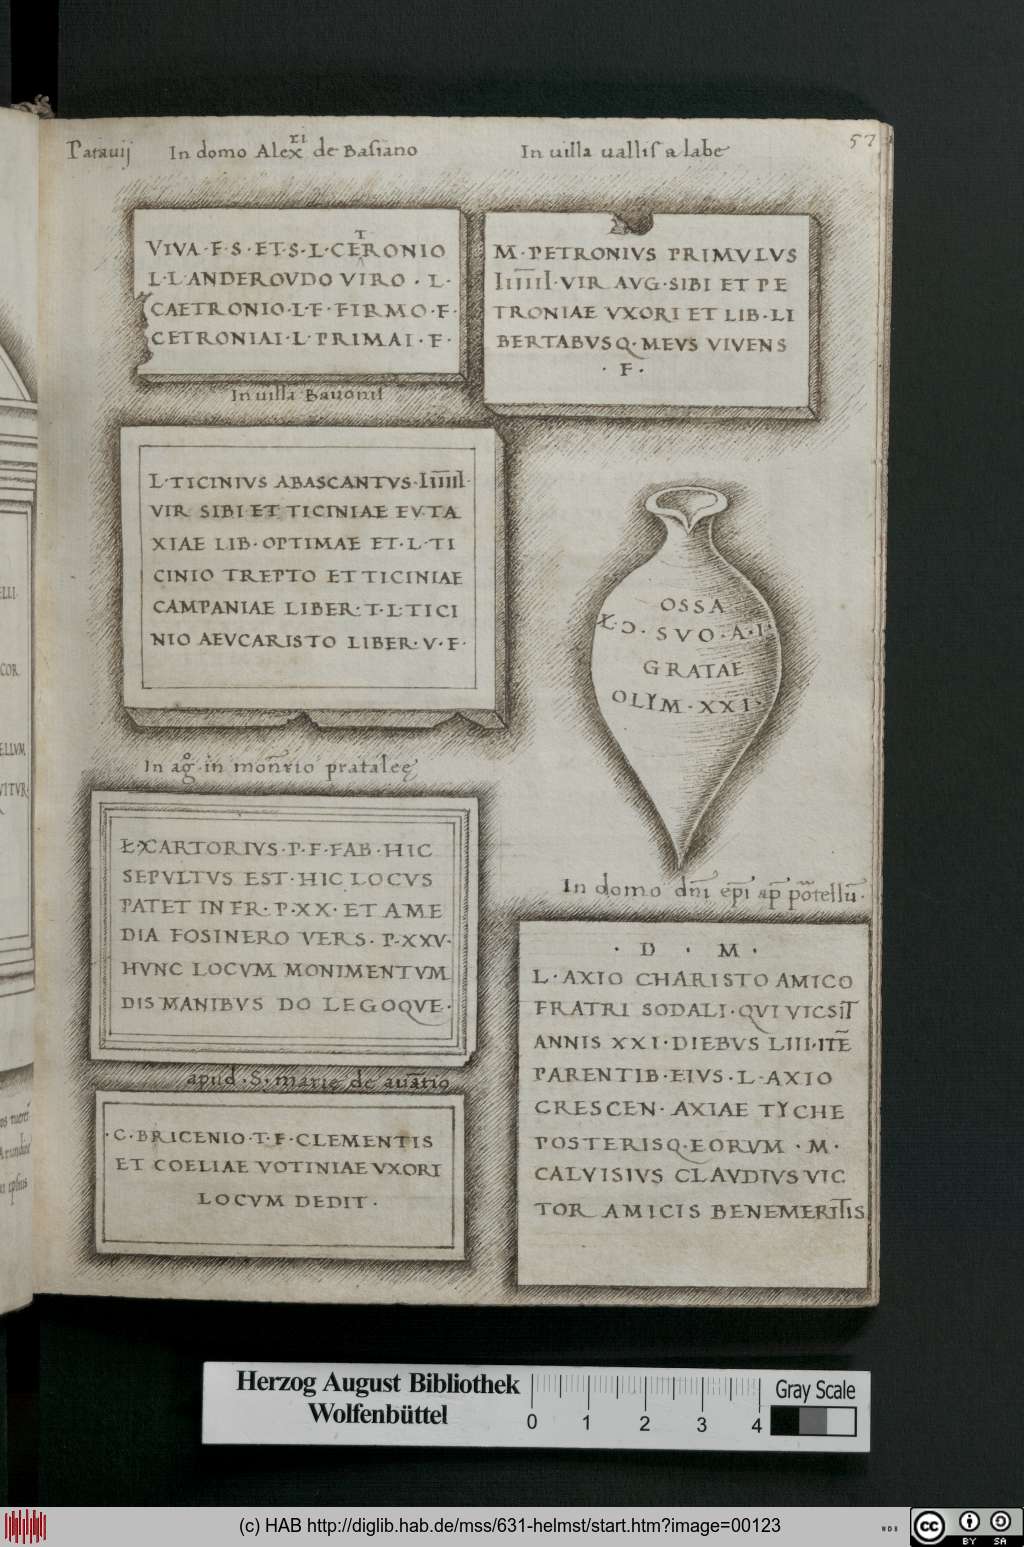 Patavij In domo Alexri de Basiano
In villa vallis a labe
57
VIVA·F·S·ET·S·L·CETRONIO
L·L·ANDEROVDO VIRO·L·
CAETRONIO·L·F·FIRMO·F·
CETRONIAI·L·PRIMAI·F·
M·PETRONIVS PRIMVLVS
IIIIII·VIR AVG·SIBI ET PE
TRONIAE VXORI ET LIB·LI
BERTABVSQ·MEVS VIVENS
·F·
In villa Bavonis
L·TICINIVS ABASCANTVS·IIIIII·
VIR SIBI·ET TICINIAE EVTA
XIAE LIB·OPTIMAE ET·L·TI
CINIO TREPTO ET TICINIAE
CAMPANIAE LIBER·T·L·TICI
NIO AEVCARISTO LIBER·V·F·
OSSA
Ɔ·SVO·A·I·
GRATAE
OLYM·XXI·
In domo dni epi ap potellu·
In agro in monrio pratalee
XARTORIVS·P·F·FAB·HIC
SEPVLTVS EST·HIC LOCVS
PATET IN FR·P·XX·ET AME
DIA FOSINERO VERS·P·XXV·
HVNC LOCVM MONIMENTVM
DIS MANIBVS DO LEGOQVE·
·D·M·
L·AXIO CHARISTO AMICO
FRATRI SODALI·QVI VICSIT
ANNIS XXI·DIEBVS LIII·ITE
PARENTIB·EIVS·L·AXIO
CRESCEN·AXIAE TYCHE
POSTERISQ·EORVM·M·
CALVISIVS CLAVDIVS VIC
TOR AMICIS BENEMERITIS
apud·S·marie de
·C·BRICENIO·T·F·CLEMENTIS
ET COELIAE VOTINIAE VXORI
LOCVM DEDIT·
ELLI·
COR
ELLVM
VITVR·
Herzog August Bibliothek
Wolfenbüttel
0 1 2 3 4
Gray Scale
(c) HAB http://diglib.hab.de/mss/631-helmst/start.htm?image=00123
WDB
cc BY SA